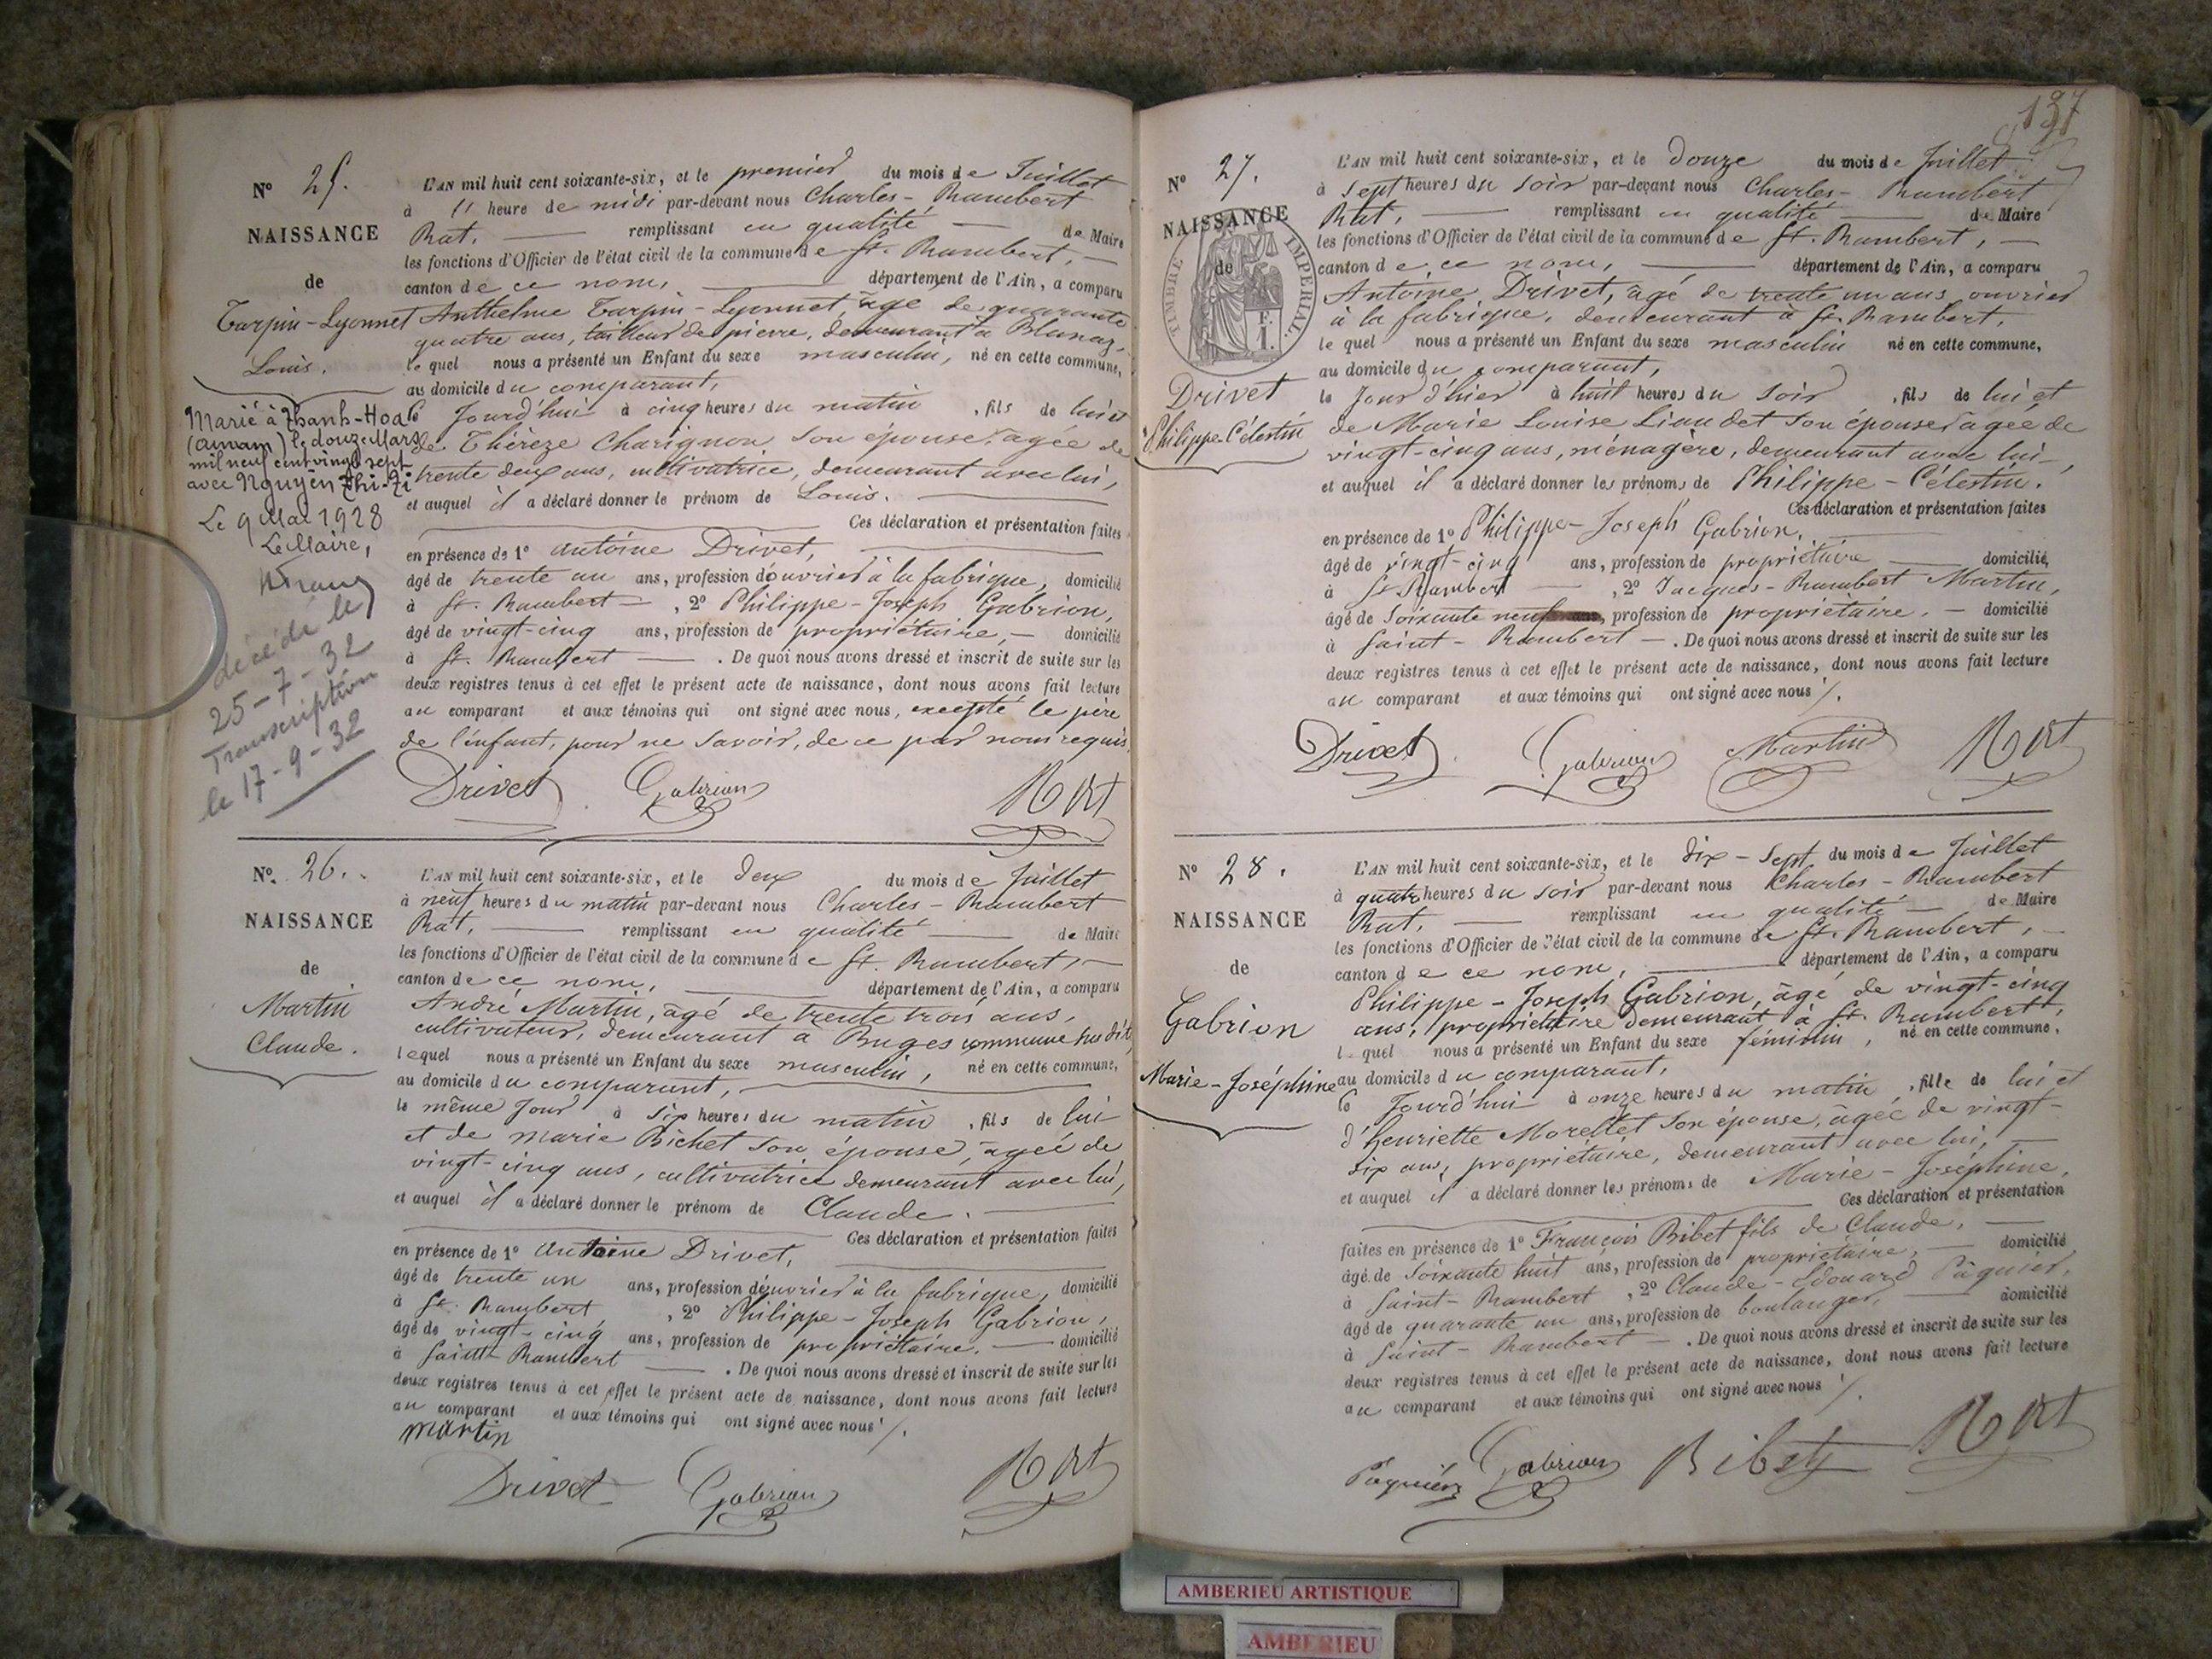 N° 25.
NAISSANCE
de
Tarpin-Lyonnet
Louis.
Marié à Thanh-Hoa
(Annam) le douze Mars
mil neuf cent vingt sept
avec Nguyên Thi-Ti
Le 9 Mai 1928
Le Maire,
décédé le
25-7-32
Transcription
le 17-9-32
L'AN mil huit cent soixante-six, et le premier du mois de Juillet
à 11 heure de midi par-devant nous Charles-Rambert
Rat, remplissant en qualité de Maire
les fonctions d'Officier de l'état civil de la commune de St. Rambert,
canton de ce nom, département de l'Ain, a comparu
Anthelme Tarpin-Lyonnet, âgé de quarante
quatre ans, tailleur de pierre, demeurant à Blanaz,
lequel nous a présenté un Enfant du sexe masculin, né en cette commune,
au domicile du comparant,
ce Jourd'hui à cinq heures du matin, fils de lui et
de Thérèze Charignon son épouse, âgée de
trente deux ans, cultivatrice, demeurant avec lui,
et auquel il a déclaré donner le prénom de Louis.
Ces déclaration et présentation faites
en présence de 1° Antoine Drivet,
âgé de trente un ans, profession d'ouvrier à la fabrique, domicilié
à St. Rambert, 2° Philippe-Joseph Gabrion,
âgé de vingt-cinq ans, profession de propriétaire, domicilié
à St. Rambert. De quoi nous avons dressé et inscrit de suite sur les
deux registres tenus à cet effet le présent acte de naissance, dont nous avons fait lecture
au comparant et aux témoins qui ont signé avec nous, excepté le père
de l'enfant, pour ne savoir, de ce par nous requis.
Drivet Gabrion Rat
N° 26.
NAISSANCE
de
Martin
Claude.
L'AN mil huit cent soixante-six, et le deux du mois de Juillet
à neuf heures du matin par-devant nous Charles-Rambert
Rat, remplissant en qualité de Maire
les fonctions d'Officier de l'état civil de la commune de St. Rambert,
canton de ce nom, département de l'Ain, a comparu
André Martin, âgé de trente trois ans,
cultivateur, demeurant à Buges commune sus dite,
lequel nous a présenté un Enfant du sexe masculin, né en cette commune,
au domicile du comparant,
le même Jour à six heures du matin, fils de lui
et de Marie Bichet son épouse, âgée de
vingt-cinq ans, cultivatrice demeurant avec lui,
et auquel il a déclaré donner le prénom de Claude.
Ces déclaration et présentation faites
en présence de 1° Antoine Drivet,
âgé de trente un ans, profession d'ouvrier à la fabrique, domicilié
à St. Rambert, 2° Philippe-Joseph Gabrion,
âgé de vingt-cinq ans, profession de propriétaire. domicilié
à Saint-Rambert. De quoi nous avons dressé et inscrit de suite sur les
deux registres tenus à cet effet le présent acte de naissance, dont nous avons fait lecture
au comparant et aux témoins qui ont signé avec nous ./.
Martin
Drivet Gabrion Rat
137
N° 27.
NAISSANCE
de
TIMBRE IMPERIAL
F.
1.
Drivet
Philippe-Célestin
L'AN mil huit cent soixante-six, et le douze du mois de Juillet
à sept heures du soir par-devant nous Charles-Rambert
Rat, remplissant en qualité de Maire
les fonctions d'Officier de l'état civil de la commune de St. Rambert,
canton de ce nom, département de l'Ain, a comparu
Antoine Drivet, âgé de trente un ans, ouvrier
à la fabrique, demeurant à St. Rambert,
lequel nous a présenté un Enfant du sexe masculin né en cette commune,
au domicile du comparant,
le Jour d'hier à huit heures du soir, fils de lui et
de Marie Louise Liaudet son épouse, âgée de
vingt-cinq ans, ménagère, demeurant avec lui,
et auquel il a déclaré donner les prénoms de Philippe-Célestin.
Ces déclaration et présentation faites
en présence de 1° Philippe-Joseph Gabrion,
âgé de vingt-cinq ans, profession de propriétaire domicilié,
à St Rambert, 2° Jacques-Rambert Martin,
âgé de Soixante neuf ans, profession de propriétaire. domicilié
à Saint-Rambert. De quoi nous avons dressé et inscrit de suite sur les
deux registres tenus à cet effet le présent acte de naissance, dont nous avons fait lecture
au comparant et aux témoins qui ont signé avec nous ./.
Drivet Gabrion Martin Rat
N° 28.
NAISSANCE
de
Gabrion
Marie-Joséphine
L'AN mil huit cent soixante-six, et le dix-sept du mois de Juillet
à quatre heures du soir par-devant nous Charles-Rambert
Rat, remplissant en qualité de Maire
les fonctions d'Officier de l'état civil de la commune de St. Rambert,
canton de ce nom, département de l'Ain, a comparu
Philippe-Joseph Gabrion, âgé de vingt-cinq
ans, propriétaire demeurant à St. Rambert,
lequel nous a présenté un Enfant du sexe féminin, né en cette commune,
au domicile du comparant,
ce Jourd'hui à onze heures du matin, fille de lui et
d'henriette Morellet son épouse, âgée de vingt-
six ans, propriétaire, demeurant avec lui,
et auquel il a déclaré donner les prénoms de Marie-Joséphine,
Ces déclaration et présentation
faites en présence de 1° François Bibet fils de Claude,
âgé de Soixante huit ans, profession de propriétaire, domicilié
à Saint-Rambert, 2° Claude-Edouard Pâquier,
âgé de quarante un ans, profession de boulanger, domicilié
à Saint-Rambert. De quoi nous avons dressé et inscrit de suite sur les
deux registres tenus à cet effet le présent acte de naissance, dont nous avons fait lecture
au comparant et aux témoins qui ont signé avec nous ./.
Pâquier Gabrion Bibet Rat
AMBERIEU ARTISTIQUE
AMBERIEU